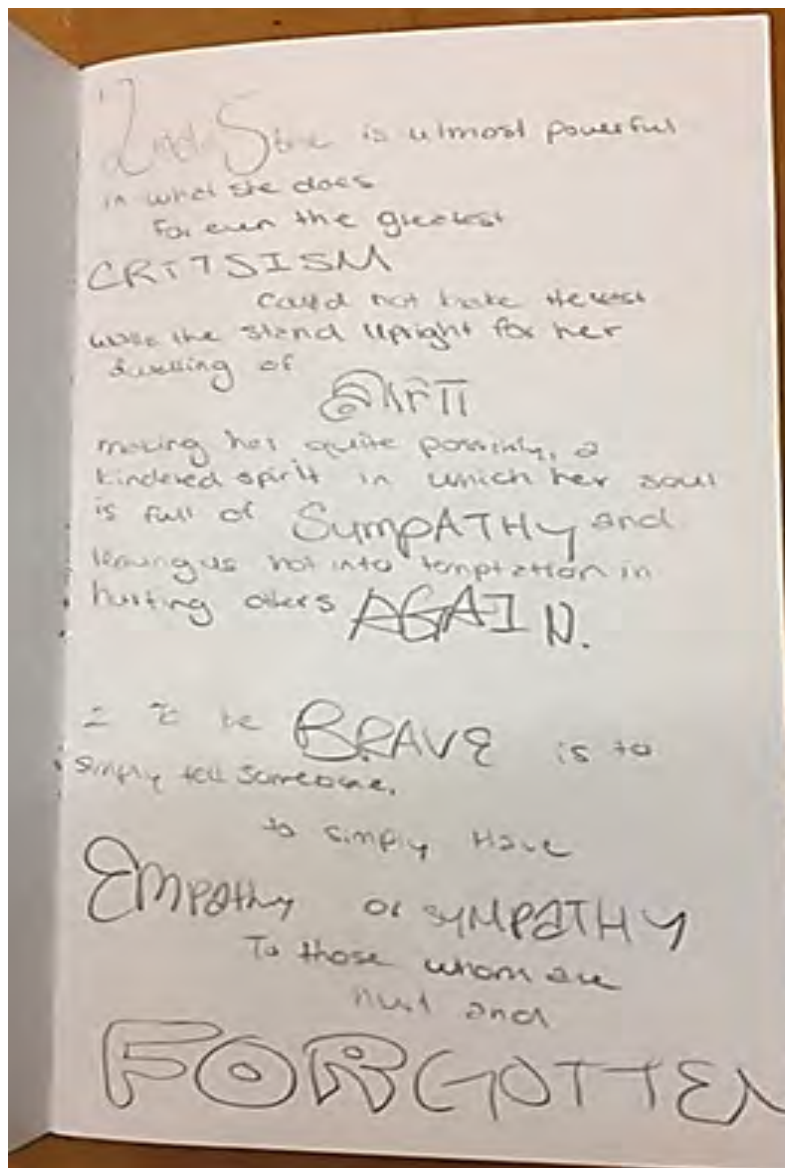 is utmost powerful
in what she does
For even the greatest
CRITISISM
could not hake
the stand upright for her
dwelling of
making her quite possibly, a
kindered spirit in which her soul
is full of SympATHy and
leaving us not into temptation in
hurting others AGAIN.
to be BRAVE is to
simply tell someone,
to simply Have
EMpathy or syMPATHY
To those whom are
hurt and
FORGOTTEN